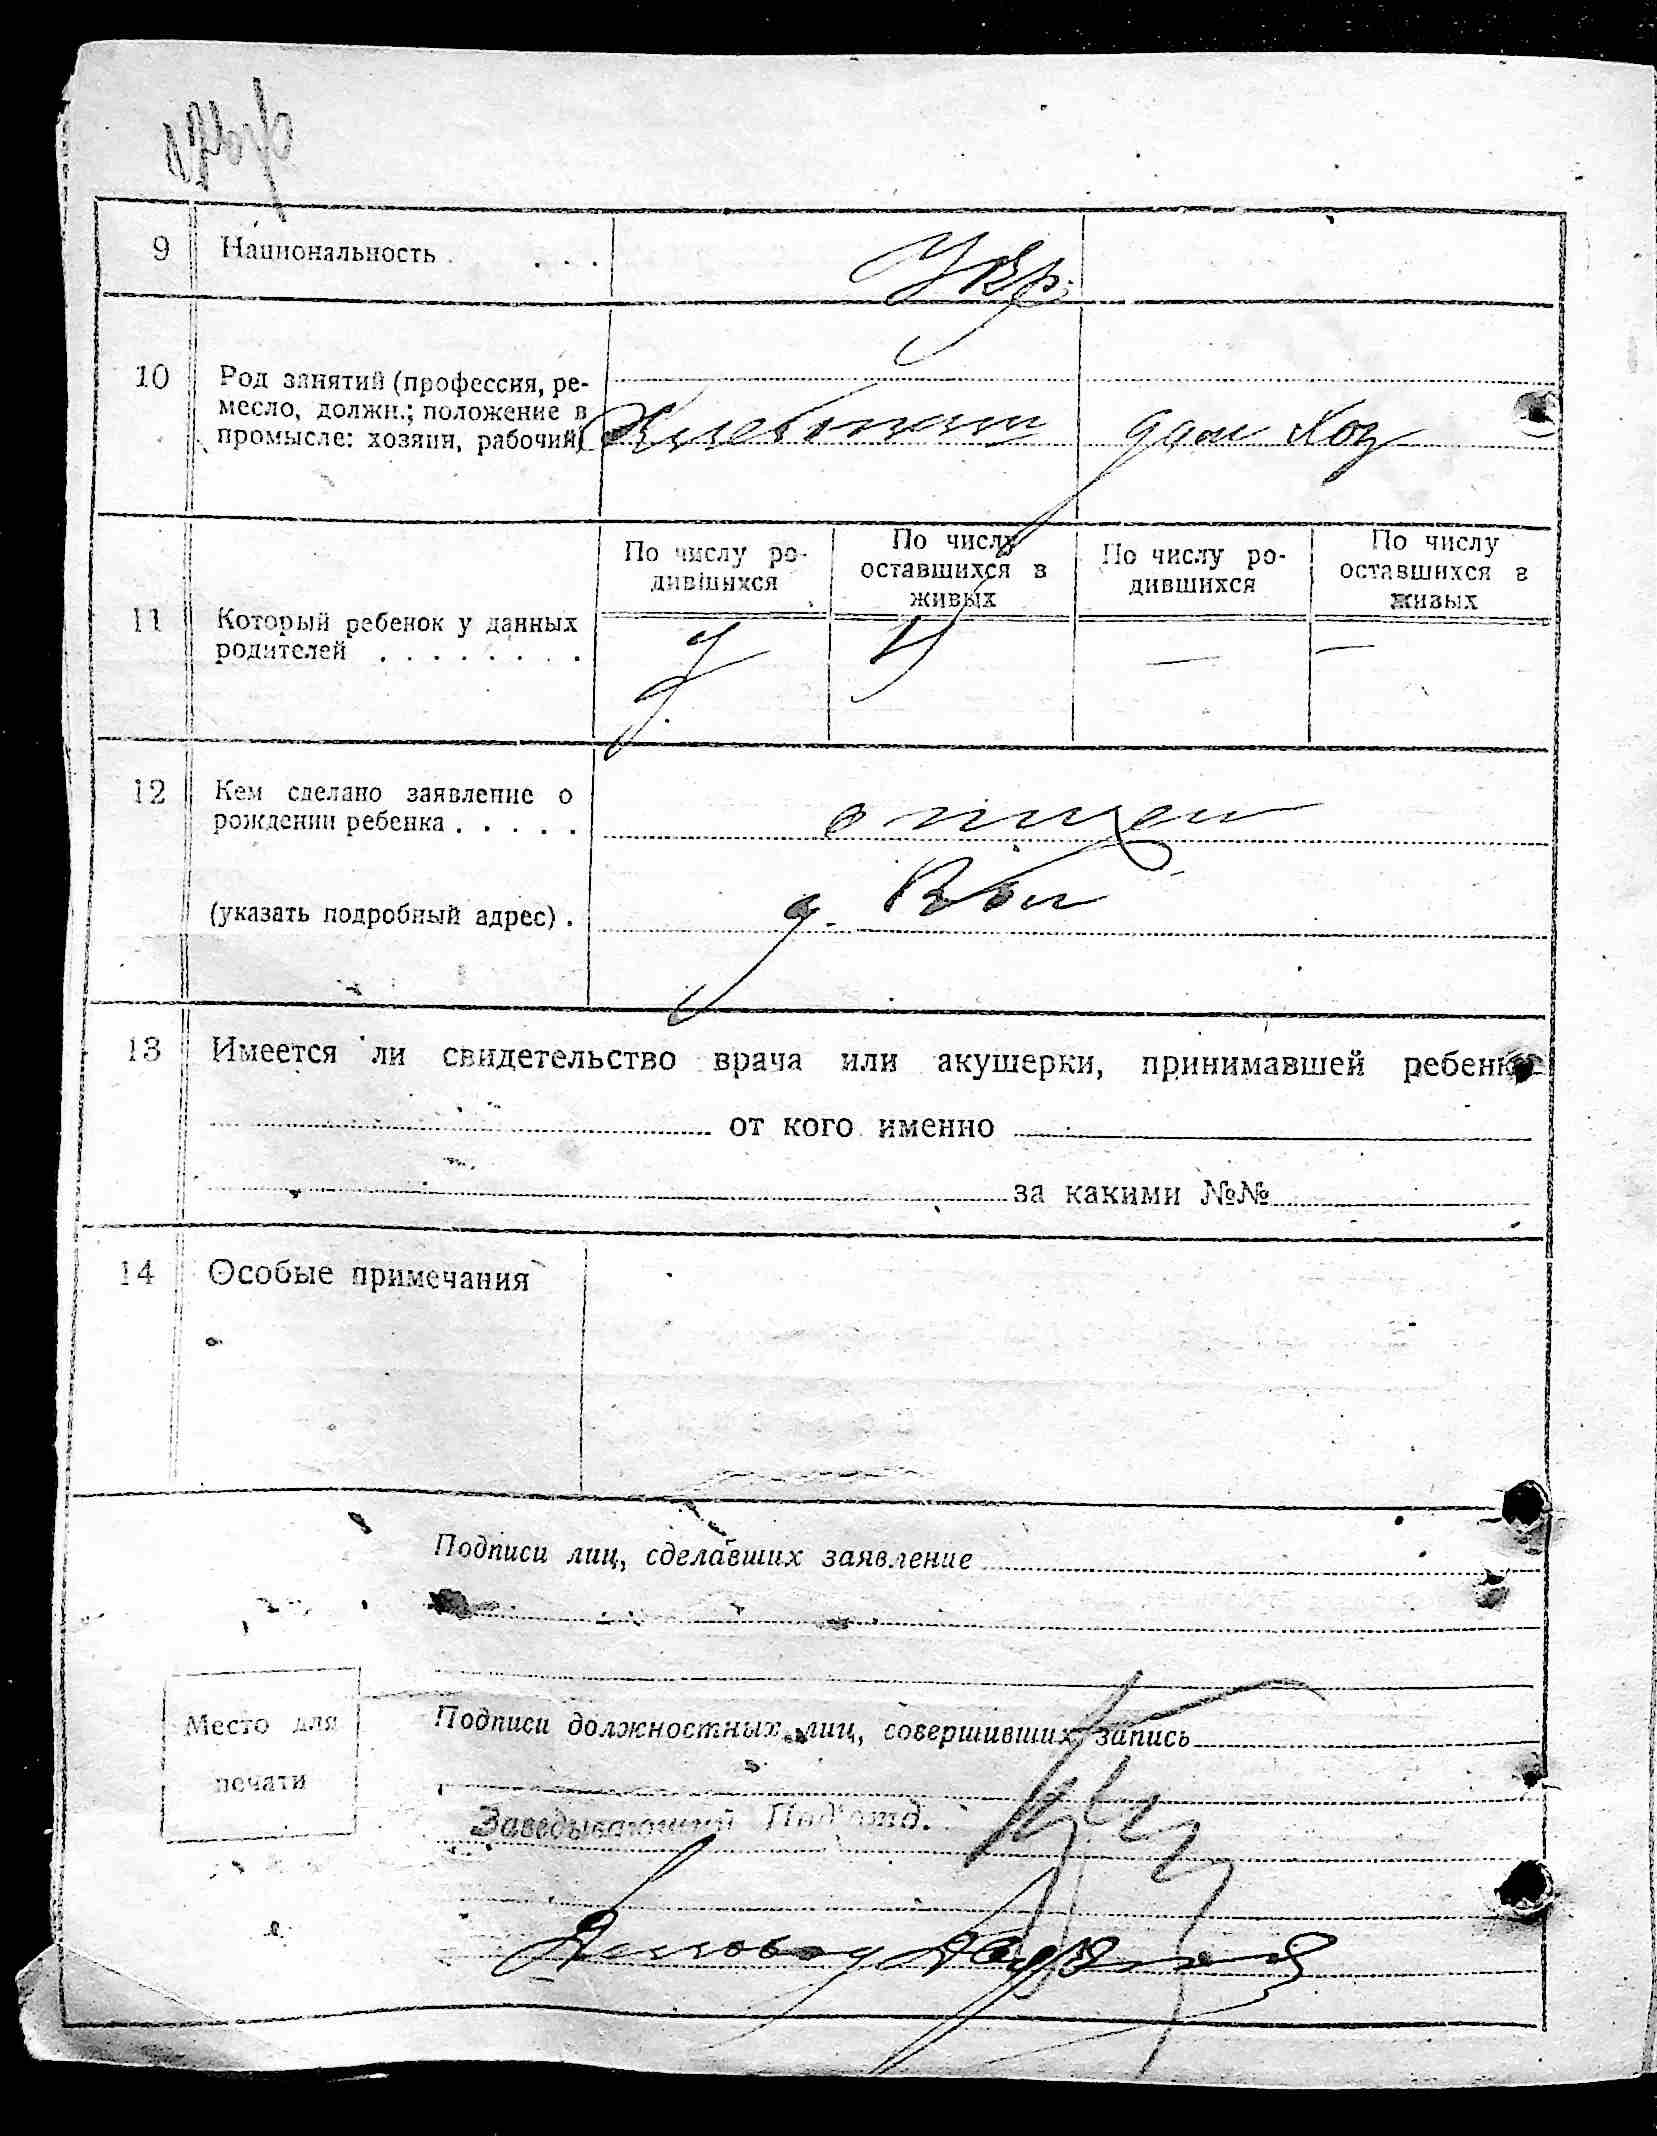 9 Национальность . . . . Укр.
10 Род занятий (профессия, ре-
месло, должн.; положение в
промысле: хозяин, рабочий) Хлебопаш дом хоз
По числу ро-
дившихся
По числу
оставшихся в
живых
По числу ро-
дившихся
По числу
оставшихся в
живых
11 Который ребенок у данных
родителей . . . . . . . . — —
12 Кем сделано заявление о
рождении ребенка . . . . . отцем
(указать подробный адрес) .
13 Имеется ли свидетельство врача или акушерки, принимавшей ребенка
от кого именно
за какими №№
14 Особые примечания
Подписи лиц, сделавших заявление
Место для
печати
Подписи должностных лиц, совершивших запись
Заведывающий Под'отд.